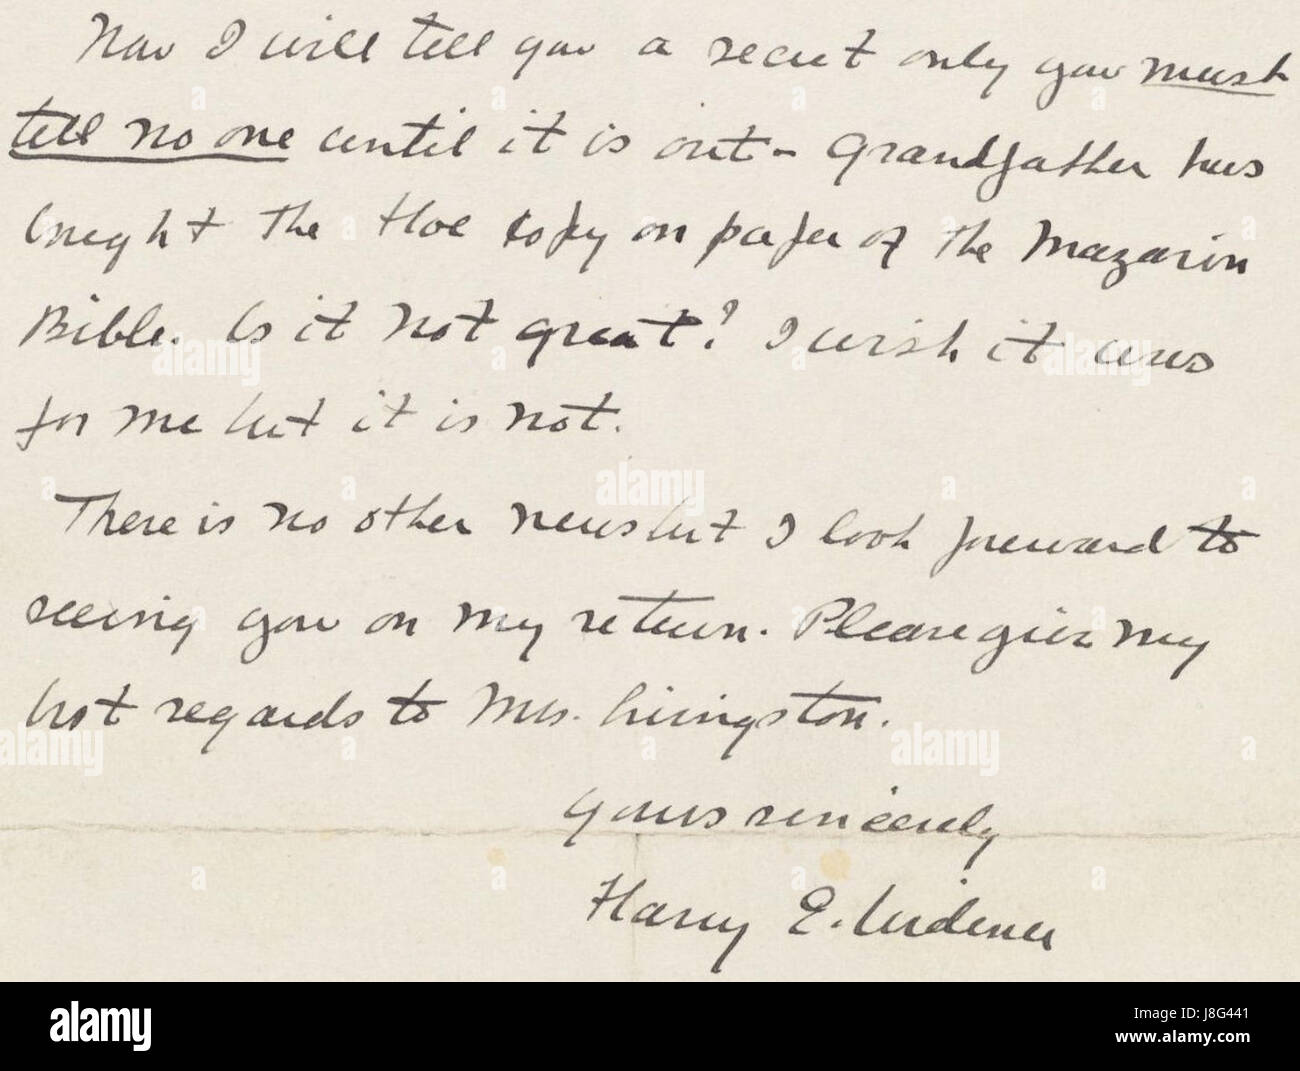 Now I will tell you a secret only you must
tell no one until it is out – Grandfather has
bought the Hoe copy on paper of the Mazarin
Bible. Is it not great? I wish it was
for me but it is not.
There is no other news but I look forward to
seeing you on my return. Please give my
best regards to Mrs. Livingston.
Yours sincerely
Harry E. Widener
alamy
alamy
Image ID: J8G441
www.alamy.com